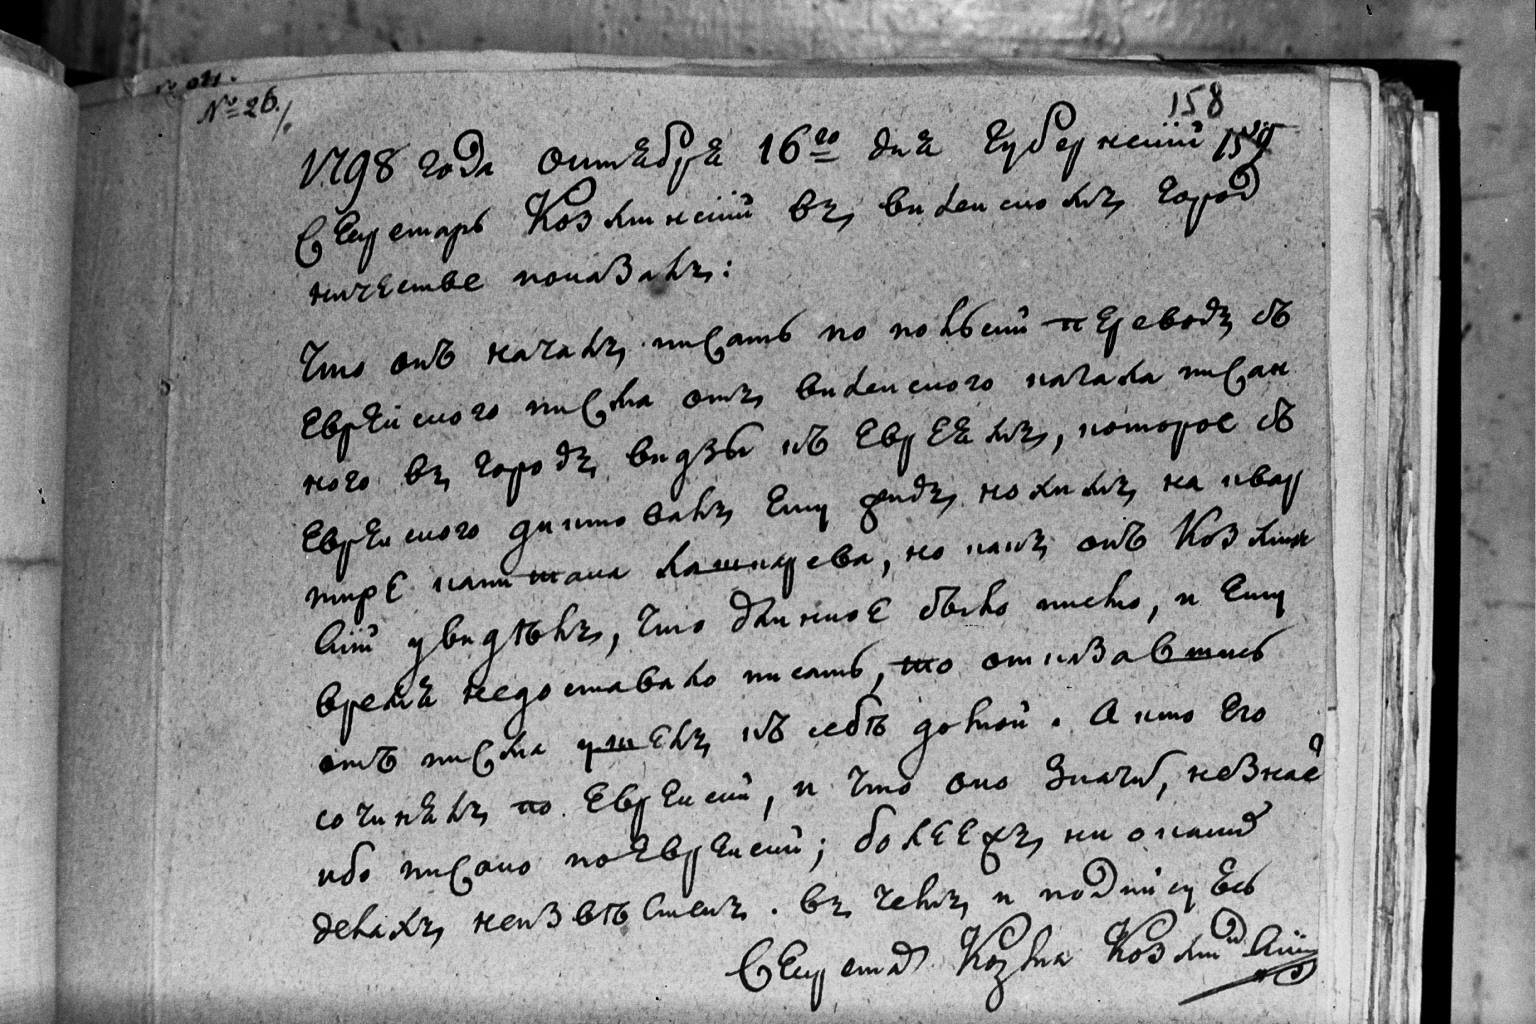 № 26.
158
1798 года октября 16го дня Губернский
Секретарь Козлинский въ виленскомъ город
ничестве показалъ:
Что онъ началъ писать по польский переводъ съ
Еврейского писма отъ виленского кагала писан
ного въ городъ видзы къ Евреямъ, которое съ
Еврейского диктовалъ Ему на квар
тире капитана но какъ онъ Козлин
ский увиделъ, что длинное было писмо, и Ему
время недоставало писать, то отказавшись
отъ писма ушелъ къ себѣ домой. А кто Его
сочинялъ по Еврейский, и что оно значит, незнае
ибо писано поеврейский; болеехъ ни о каких
делахъ неизвѣстенъ. въ чемъ и подписуюсь
Секретар Козма Козлинский